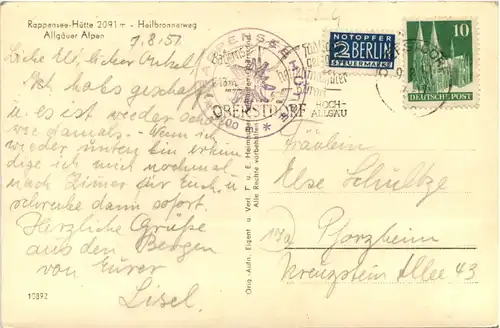 Rappensee-Hütte 2091 m - Heilbronnerweg
Allgäuer Alpen
7.8.51
Liebe El, lieber Onkel!
Ich hab's geschafft
u. es ist wieder schön
wie damals - Wenn ich
wieder unten bin erkun-
dige ich mich nochmal
nach Zimmer für Euch, u.
schreibe dann sofort.
Herzliche Grüße
aus den Bergen
von Eurer
Lisel.
10892
Orig.-Aufn. Eigent u. Verl. F. u. E. Heimhuber
Alle Rechte vorbehalten
RAPPENSEEHÜTTE
OBERSTDORF
HOCH-
ALLGÄU
NOTOPFER
2 BERLIN
STEUERMARKE
10
DEUTSCHE POST
Fräulein
Else Schultze
(14a) Pforzheim
Kreuzstein Allee 43